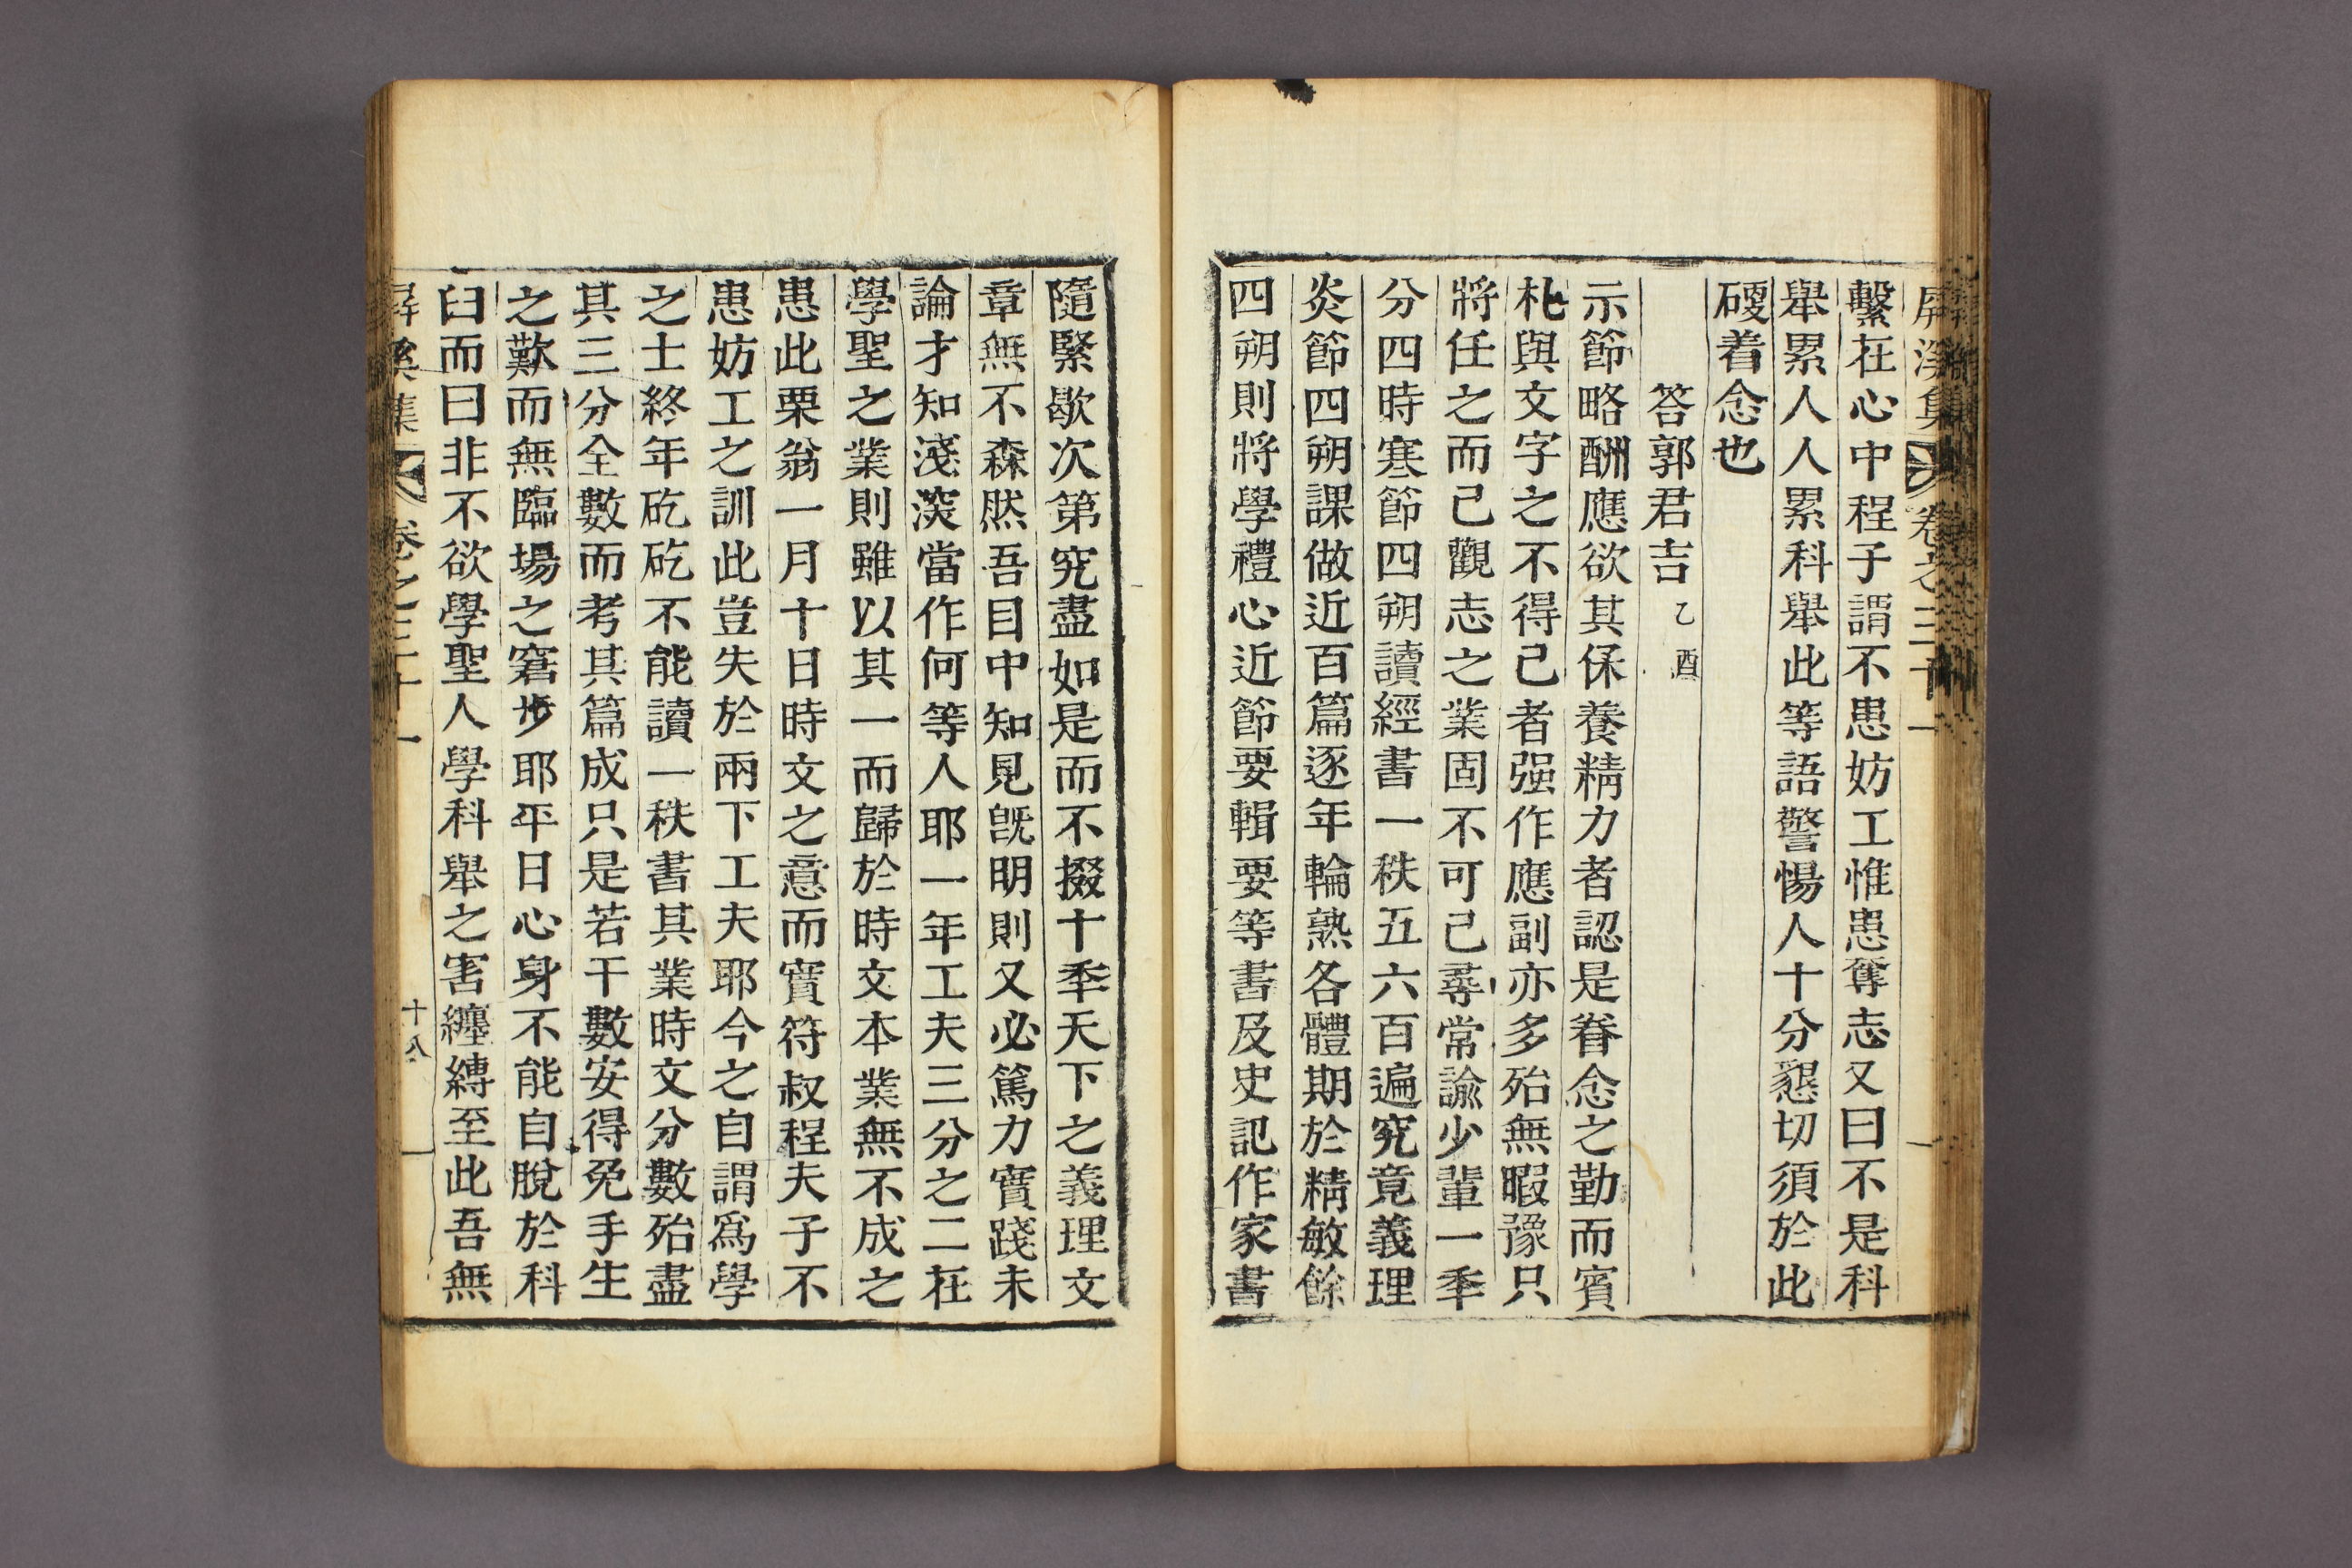 屛溪集 卷之三十一
繫在心中程子謂不患妨工惟患奪志又曰不是科
舉累人人累科舉此等語警惕人十分懇切須於此
硬着念也
答郭君吉 乙酉
示節略酬應欲其保養精力者認是眷念之勤而賓
札與文字之不得已者强作應副亦多殆無暇豫只
將任之而已觀志之業固不可已尋常諭少輩一季
分四時寒節四朔讀經書一秩五六百遍究竟義理
炎節四朔課做近百篇逐年輪熟各體期於精敏餘
四朔則將學禮心近節要輯要等書及史記作家書
隨緊歇次第究盡如是而不掇十季天下之義理文
章無不森然吾目中知見旣明則又必篤力實踐未
論才知淺深當作何等人耶一年工夫三分之二在
學聖之業則雖以其一而歸於時文本業無不成之
患此栗翁一月十日時文之意而實符叔程夫子不
患妨工之訓此豈失於兩下工夫耶今之自謂爲學
之士終年矻矻不能讀一秩書其業時文分數殆盡
其三分全數而考其篇成只是若干數安得免手生
之歎而無臨場之窘步耶平日心身不能自脫於科
臼而曰非不欲學聖人學科舉之害纏縛至此吾無
屛溪集 卷之三十一 十八